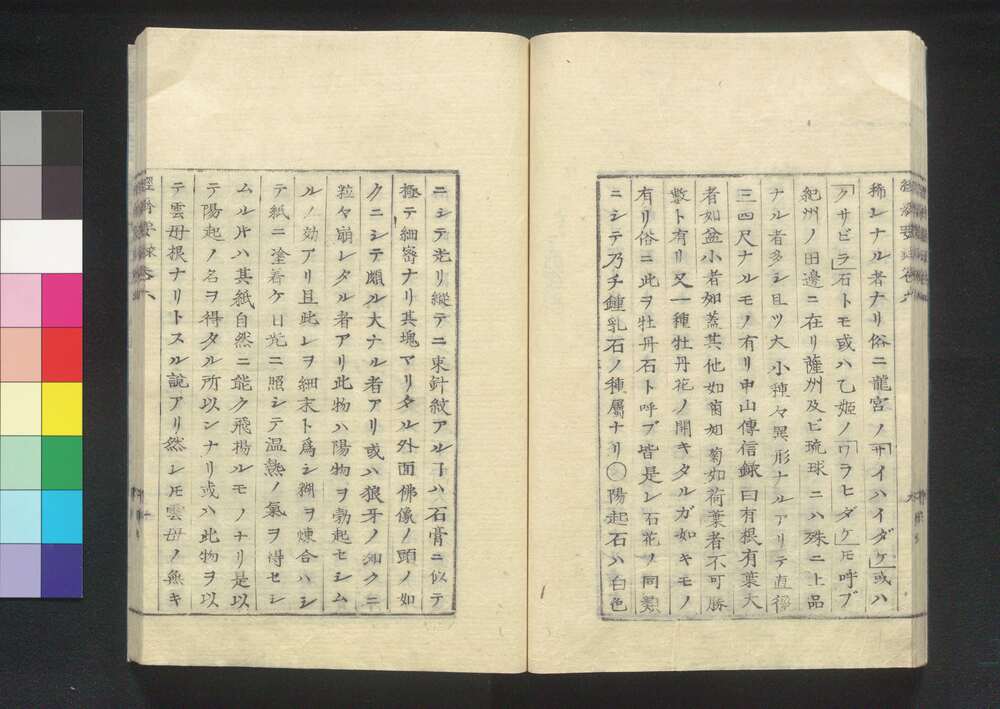 稀レナル者ナリ俗ニ龍宮ノ「サイハイダケ」或ハ
「クサビラ」石トモ或ハ乙姫ノ「ワラヒダケ」𪜈呼ブ
紀州ノ田邊ニ在リ薩州及ビ琉球ニハ殊ニ上品
ナル者多シ且ツ大小種々異形ナルアリテ直徑
三四尺ナルモノ有リ中山傳信録曰有根有葉大
者如盆小者如蓋其他如菌如菊如荷葉者不可勝
數ト有リ又一種牡丹花ノ開キタルガ如キモノ
有リ俗ニ此ヲ牡丹石ト呼ブ皆是レ石花ノ同類
ニシテ乃チ鍾乳石ノ種屬ナリ○陽起石ハ白色
ニシテ光リ縱テニ束針紋アルヿハ石膏ニ似テ
極テ細密ナリ其塊マリタル外面佛像ノ頭ノ如
クニシテ頗ル大ナル者アリ或ハ狼牙ノ如クニ
粒々崩レタル者アリ此物ハ陽物ヲ勃起セシム
ルノ効アリ且此レヲ細末ト爲シ糊ヲ煉合ハシ
テ紙ニ塗着ケ日光ニ照シテ温熱ノ氣ヲ得セシ
ムル片ハ其紙自然ニ能ク飛揚ルモノナリ是以
テ陽起ノ名ヲ得タル所以ンナリ或ハ此物ヲ以
テ雲母根ナリトスル説アリ然シ𪜈雲母ノ無キ